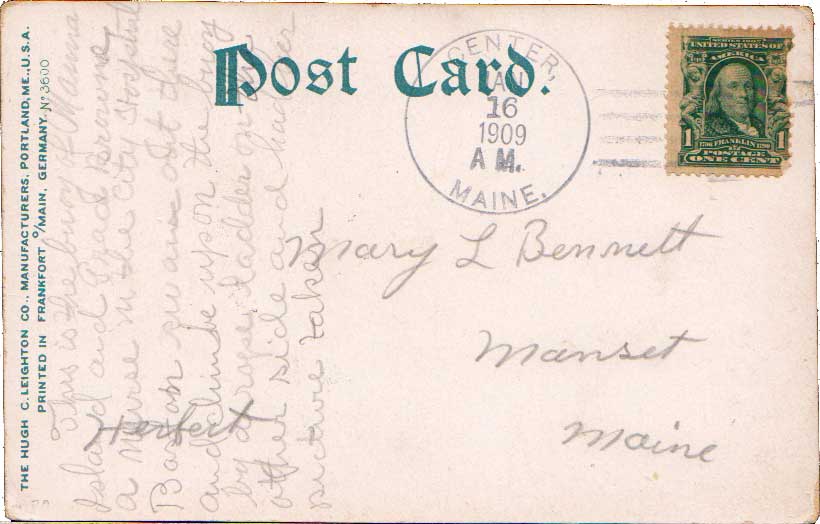 THE HUGH C. LEIGHTON CO., MANUFACTURERS, PORTLAND, ME., U.S.A.
PRINTED IN FRANKFORT o/MAIN, GERMANY. No 3600
Post Card.
CENTER,
JAN
16
1909
A M.
MAINE.
SERIES 1902
UNITED STATES OF
AMERICA
1
1
FRANKLIN
POSTAGE
ONE CENT
This is the buoy
Island and Browne
a nurse in the City Hospital
Boston out there
and climbe upon the buoy
by a rope ladder on the
other side and had her
picture taken
Herbert
Mary L Bennett
Manset
Maine